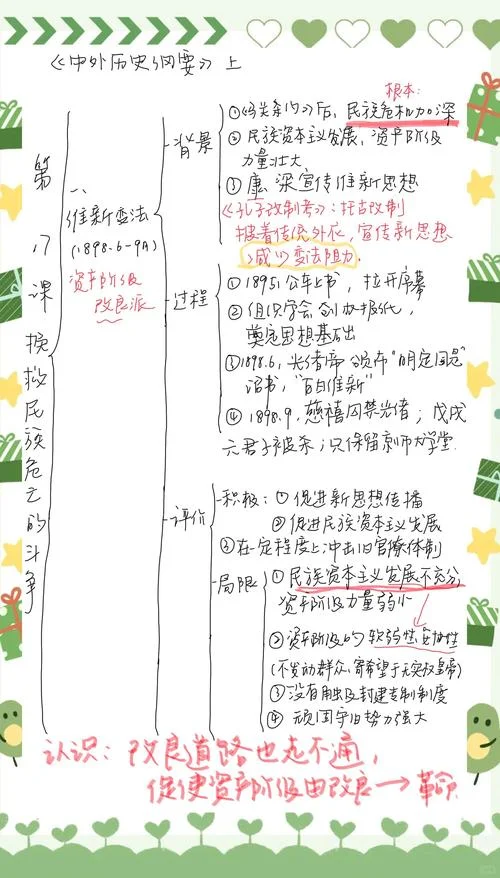 《中外历史纲要》上
第18课 挽救民族危亡的斗争
一、
维新变法
(1898.6-9月)
资产阶级
改良派
背景
根本:
①《马关条约》后,民族危机加深
②民族资本主义发展,资产阶级
力量壮大
③康、梁宣传维新思想
《孔子改制考》:托古改制
披着传统外衣,宣传新思想
减少变法阻力.
过程
①1895,公车上书,拉开序幕
②组织学会、创办报纸,
奠定思想基础
③1898.6,光绪帝颁布"明定国是"
诏书,"百日维新"
④1898.9,慈禧囚禁光绪;戊戌
六君子被杀;只保留京师大学堂.
评价
积极:①促进新思想传播
②促进民族资本主义发展
③在一定程度上冲击旧官僚体制
局限
①民族资本主义发展不充分
资产阶级力量弱小
②资产阶级的软弱性、妥协性
(不发动群众,寄希望于无实权皇帝)
③没有触及封建专制制度
④顽固守旧势力强大
认识:改良道路也走不通,
促使资产阶级由改良→革命.